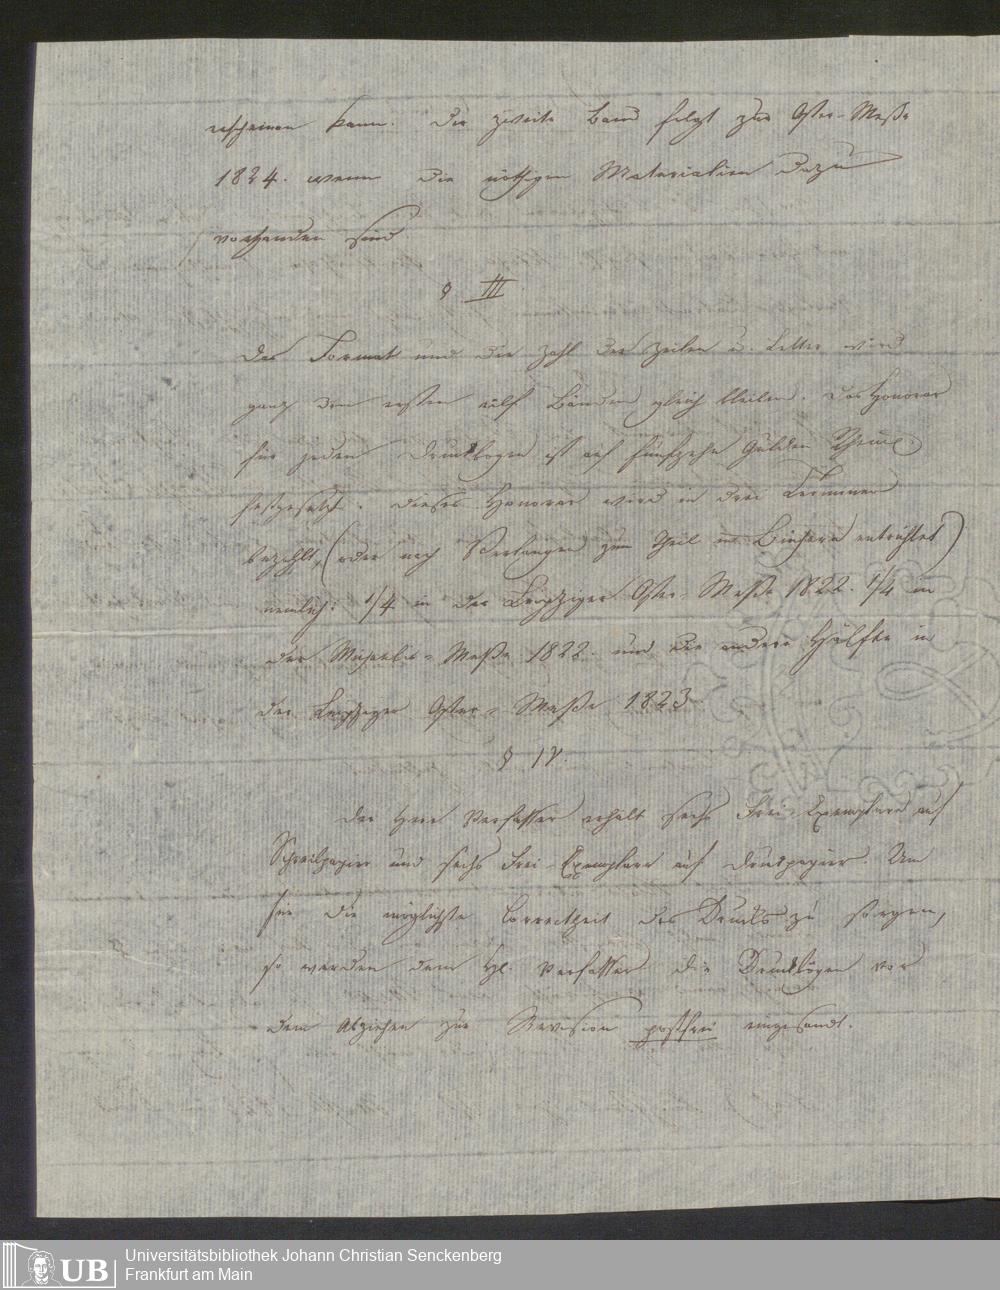 erscheinen kann. Der zweite Band folgt zur Oster-Messe
1824. wenn die nöthigen Materialien dazu
vorhanden sind
§ III
Das Format und die Zahl der Zeilen u. Letter wird
ganz den ersten eilf Bänden gleich bleiben. Das Honorar
für jeden Druckbogen ist auf fünfzehn Gulden Rheinl
festgesetzt. Dieses Honorar wird in drei Terminen
bezahlt, (oder nach Verlangen zum Theil in Büchern entrichtet)
nemlich: 1/4 in der Leipziger Oster-Messe 1822. 1/4 in
der Michaelis-Messe 1822. und die andere Hälfte in
der Leipziger Oster-Messe 1823
§ IV.
Der Herr Verfasser erhält sechs Frei-Exemplare auf
Schreibpapier und sechs Frei-Exemplare auf Druckpapier. Um
für die möglichste Correctheit des Drucks zu sorgen,
so werden dem H. Verfasser die Druckbögen vor
dem Abziehen zur Revision postfrei eingesandt.
UB
Universitätsbibliothek Johann Christian Senckenberg
Frankfurt am Main